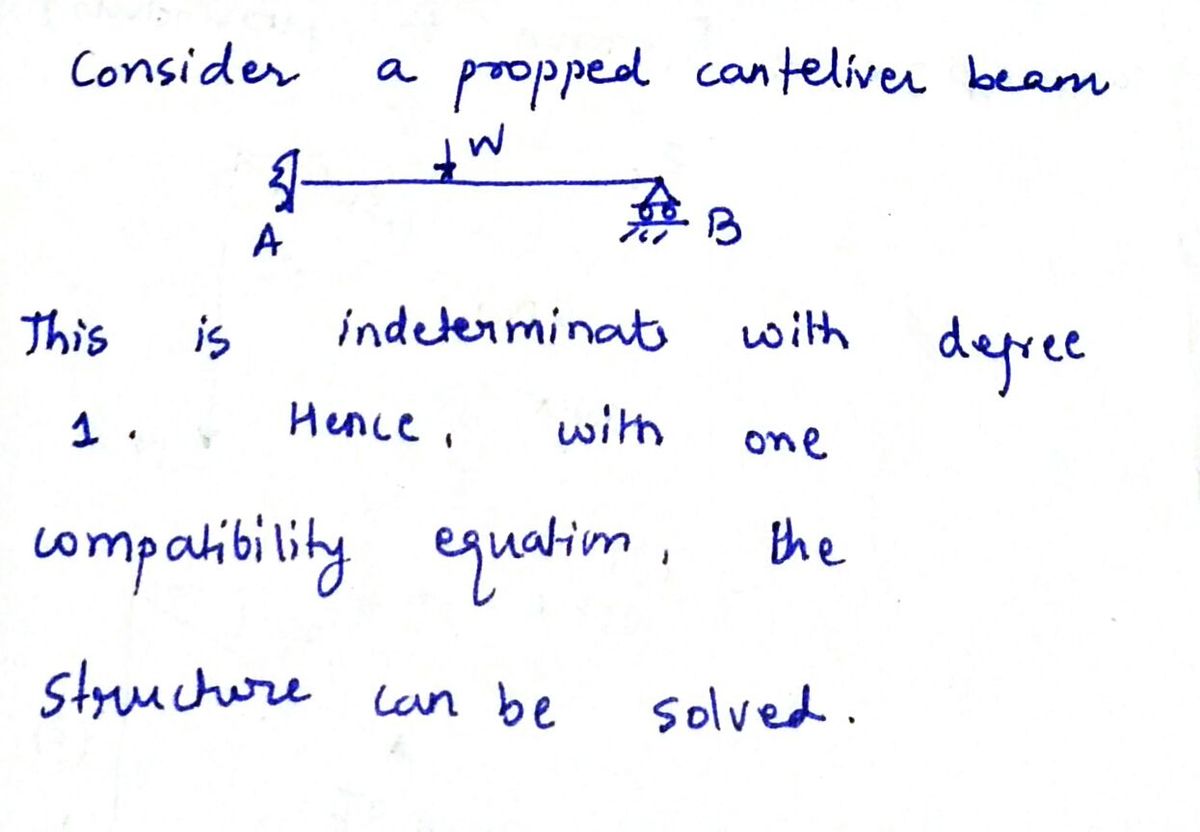 Consider a propped canteliver beam
W
A
B
This is indeterminate with degree
1. Hence, with one
compatibility equation, the
structure can be solved.